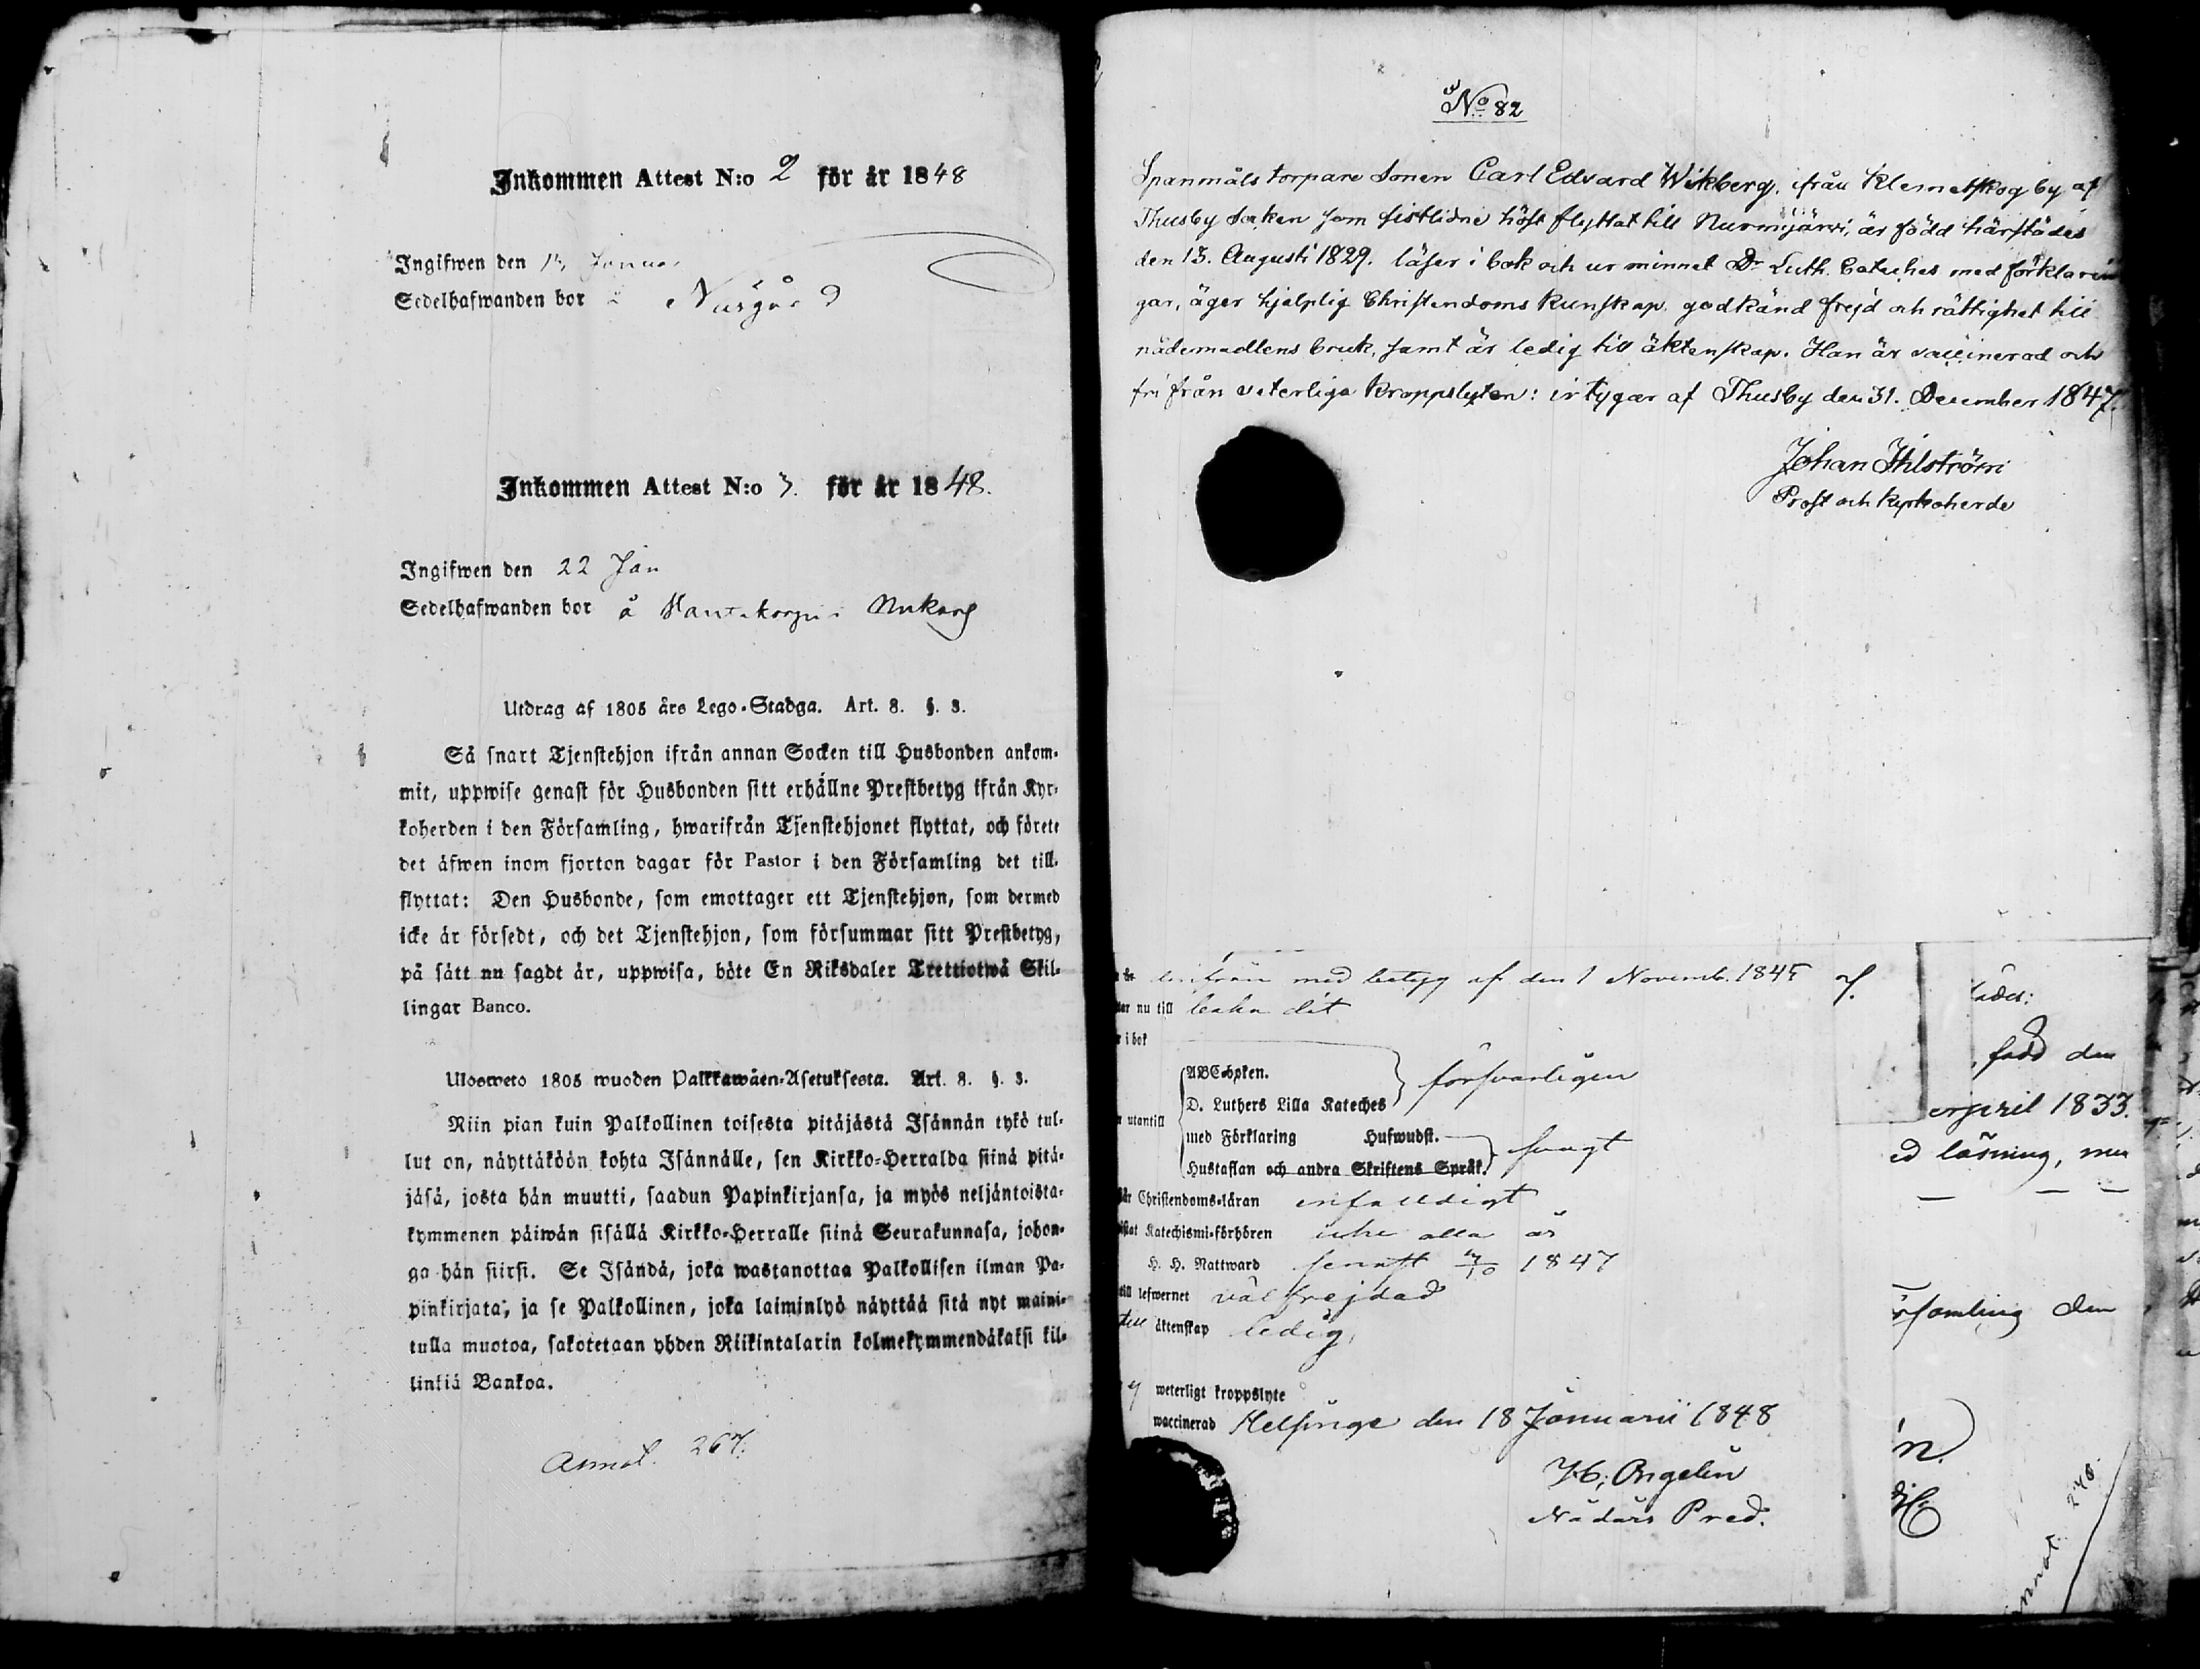 Inkommen Attest N:o 2 för år 1848
Ingifwen den
Sedelhafwanden bor
Inkommen Attest N:o 3. för år 1848.
Ingifwen den 22 Jan
Sedelhafwanden bor å
Utdrag af 1805 års Lego-Stadga. Art. 8. §. 3.
Så snart Tjenstehjon ifrån annan Socken till Husbonden ankom-
mit, uppwise genast för Husbonden sitt erhållne Prestbetyg ifrån Kyr-
koherden i den Församling, hwarifrån Tjenstehjonet flyttat, och förete
det äfwen inom fjorton dagar för Pastor i den Församling det till-
flyttat: Den Husbonde, som emottager ett Tjenstehjon, som dermed
icke är försedt, och det Tjenstehjon, som försummar sitt Prestbetyg,
på sätt nu sagdt är, uppwisa, böte En Riksdaler Trettiotwå Skil-
lingar Banco.
Ulosweto 1805 wuoden Palkkawäen-Asetuksesta. Art. 8. §. 3.
Niin pian kuin Palkollinen toisesta pitäjästä Isännän tykö tul-
lut on, näyttäköön kohta Isännälle, sen Kirkko-Herralda siinä pitä-
jäsä, josta hän muutti, saadun Papinkirjansa, ja myös neljäntoista-
kymmenen päiwän sisällä Kirkko-Herralle siinä Seurakunnasa, johon-
ga hän siirsi. Se Isändä, joka wastanottaa Palkollisen ilman Pa-
pinkirjata, ja se Palkollinen, joka laiminlyö näyttää sitä nyt maini-
tulla muotoa, sakotetaan yhden Riikintalarin kolmekymmendäkaksi kil-
linkiä Bankoa.
Annot. 267.
No 82
Spanmåls torpare Sonen Carl Edvard Wikberg, ifrån Klemetskog by af
Thusby Socken som sistlidne höst flyttat till Nurmijärvi, är född härstädes
den 13. Augusti 1829. läser i bok och ur minnet Dr Luth. Cateches med förklarin
gar, äger hjelplig Christendoms kunskap, godkänd frejd och rättighet till
nådemedlens bruk, samt är ledig till äktenskap. Han är vaccinerad och
fri från veterliga kroppslyten: intygar af Thusby den 31. December 1847.
Johan Ihlström
Prost och Kyrkoherde
med betyg af den 1 Novemb. 1845
nu till dit
i bok
ABC-boken.
D. Luthers Lilla Kateches försvarligen
utantill
med Förklaring Hufwudst.
Hustaflan och andra Skriftens Språk. svagt
Christendoms-läran enfaldigt
Katechismi-förhören alla år
H. H. Nattward senast 1847
lefwernet välfrejdad
till äktenskap ledig,
weterligt kroppslyte
waccinerad Helsinge den 18 Januarii 1848
Angelin
Nådårs Pred.
född den
april 1833.
läsning, men
församling den
248.